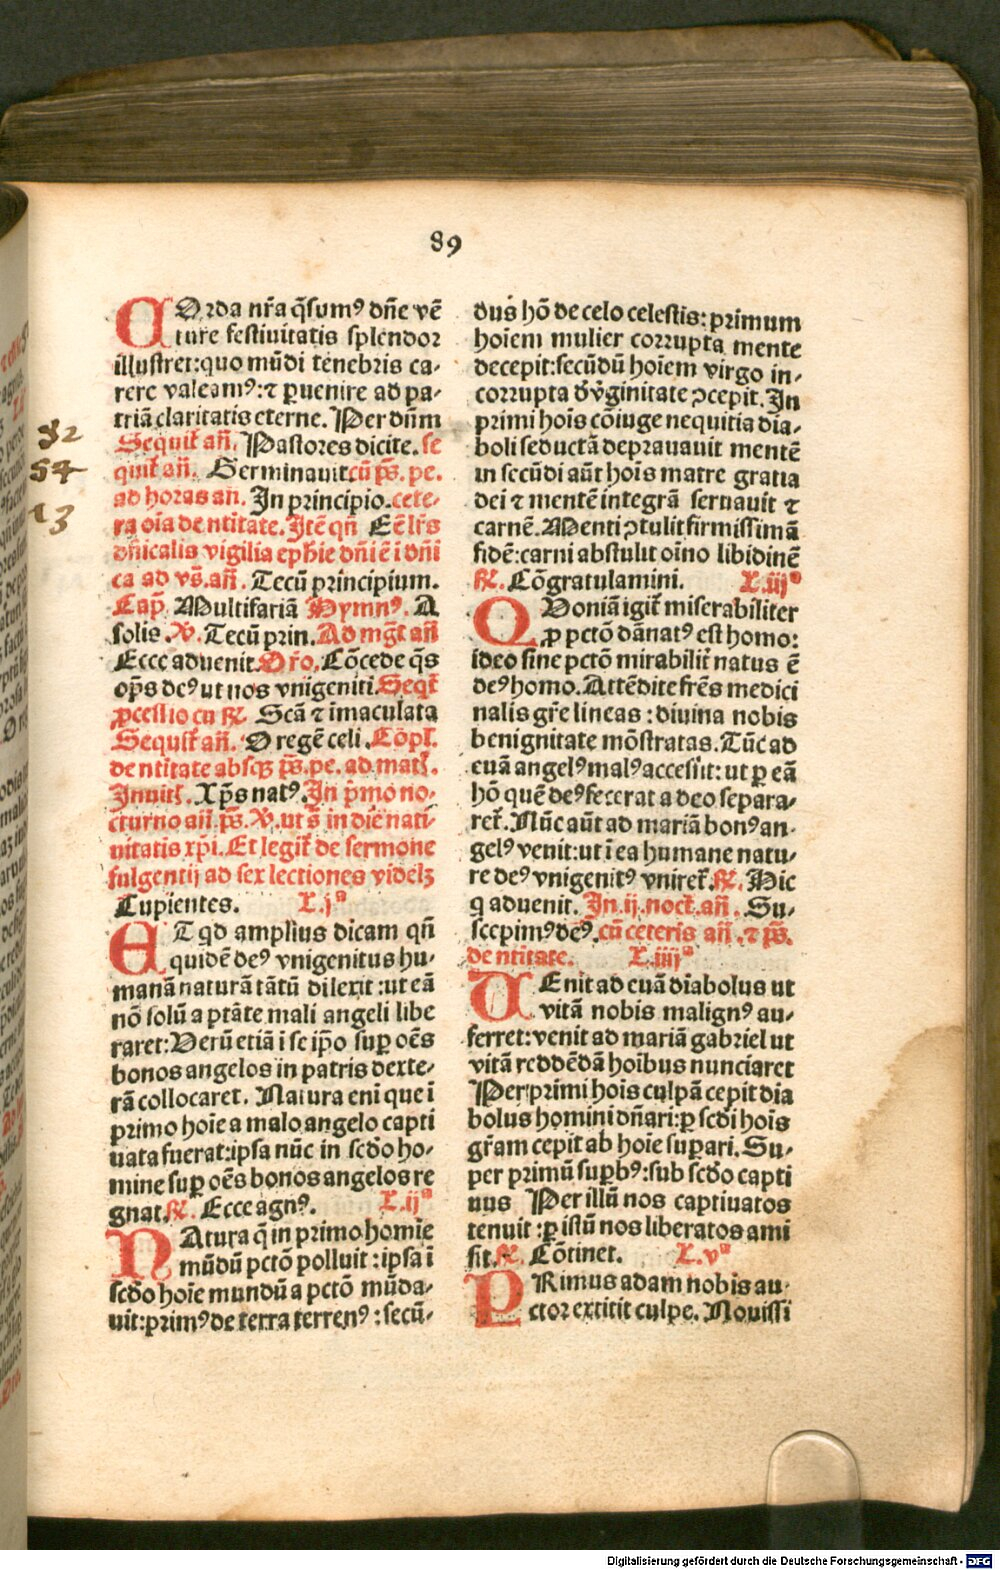 89
COrda nr̃a q̃sumꝰ dñe vẽ
ture festiuitatis splendor
illustret: quo mũdi tenebris ca⸗
rere valeamꝰ: ⁊ ꝑuenire ad pa⸗
triã claritatis eterne. Per dñm
Sequit᷑ añ. Pastores dicite. se
quit᷑ añ. Germinauit cũ p̃s. pe.
ad horas añ. In principio. cete⸗
ra oĩa de ntitate. Itẽ qñ Eẽ lr̃s
dñicalis vigilia ephĩe dñi ẽ i dñi
ca ad vs̃. añ. Tecũ principium.
Cap̃. Multifariã Hymnꝰ. A
solis. ℣. Tecũ prin. Ad mg̃t añ
Ecce aduenit. Or̃o. Cõcede q̃s
op̃s deꝰ ut nos vnigeniti. Seqt᷑
ꝓcessio cũ ℟. Scã ⁊ ĩmaculata
Sequit᷑ añ. O regẽ celi. Cõpl̃.
de ntitate absqꝫ p̃s. pe. ad mat̃.
Inuit̃. Xp̃s natꝰ. In p̃mo no⸗
cturno añ. p̃s. ℣. ut s̃ in die nati⸗
uitatis xp̃i. Et legit᷑ de sermone
fulgentij ad sex lectiones videlꝫ
Cupientes. L. jᵃ
ET qd amplius dicam qñ
quidẽ deꝰ vnigenitus hu⸗
manã naturã tãtũ dilexit: ut eã
nõ solũ a ptãte mali angeli libe
raret: Verũ etiã i se ip̃o suꝑ oẽs
bonos angelos in patris dexte⸗
rã collocaret. Natura eni que i
primo hoĩe a malo angelo capti
uata fuerat: ipsa nũc in scd̃o ho⸗
mine suꝑ oẽs bonos angelos re
gnat. ℟. Ecce agnꝰ. L. ijᵃ
NAtura q̃ in primo homine
mũdũ pctõ polluit: ipsa i
scd̃o hoĩe mundũ a pctõ mũda⸗
uit: primꝰ de terra terrenꝰ: secũ⸗
dus hõ de celo celestis: primum
hoĩem mulier corrupta mente
decepit: secũdũ hoĩem virgo in⸗
corrupta d̃ v̈ginitate ↄcepit. In
primi hoĩs cõiuge nequitia dia⸗
boli seductã deprauauit mentẽ
in secũdi aũt hoĩs matre gratia
dei ⁊ mentẽ integrã seruauit ⁊
carnẽ. Menti ↄtulit firmissimã
fidẽ: carni abstulit oĩno libidinẽ
℟. Cõgratulamini. L. iijᵃ
QUoniã igit᷑ miserabiliter
ꝓ pctõ dãnatꝰ est homo:
ideo sine pctõ mirabilit᷑ natus ẽ
deꝰ homo. Attẽdite frẽs medici
nalis gr̃e lineas: diuina nobis
benignitate mõstratas. Tũc ad
euã angelꝰ malꝰ accessit: ut ꝑ eã
hõ quẽ deꝰ fecerat a deo separa⸗
ret᷑. Nũc aũt ad mariã bonꝰ an⸗
gelꝰ venit: ut i ea humane natu⸗
re deꝰ vnigenitꝰ vniret᷑. ℟. Hic
q aduenit. In ij. noct᷑. añ. Su⸗
scepimꝰ deꝰ. cũ ceteris añ. ⁊ p̃s.
de ntitate. L. iiijᵃ
VEnit ad euã diabolus ut
vitã nobis malignꝰ au⸗
ferret: venit ad mariã gabriel ut
vitã reddẽdã hoĩbus nunciaret
Per primi hoĩs culpã cepit dia
bolus homini dñari: ꝑ scd̃i hoĩs
gr̃am cepit ab hoĩe suꝑari. Su⸗
per primũ suꝑbꝰ: sub scd̃o capti
uus Per illũ nos captiuatos
tenuit: ꝑ istũ nos liberatos ami
sit. ℟. Cõtinet. L. vᵃ
PRimus adam nobis au⸗
ctor extitit culpe. Nouissi
82
54
13
Digitalisierung gefördert durch die Deutsche Forschungsgemeinschaft - DFG